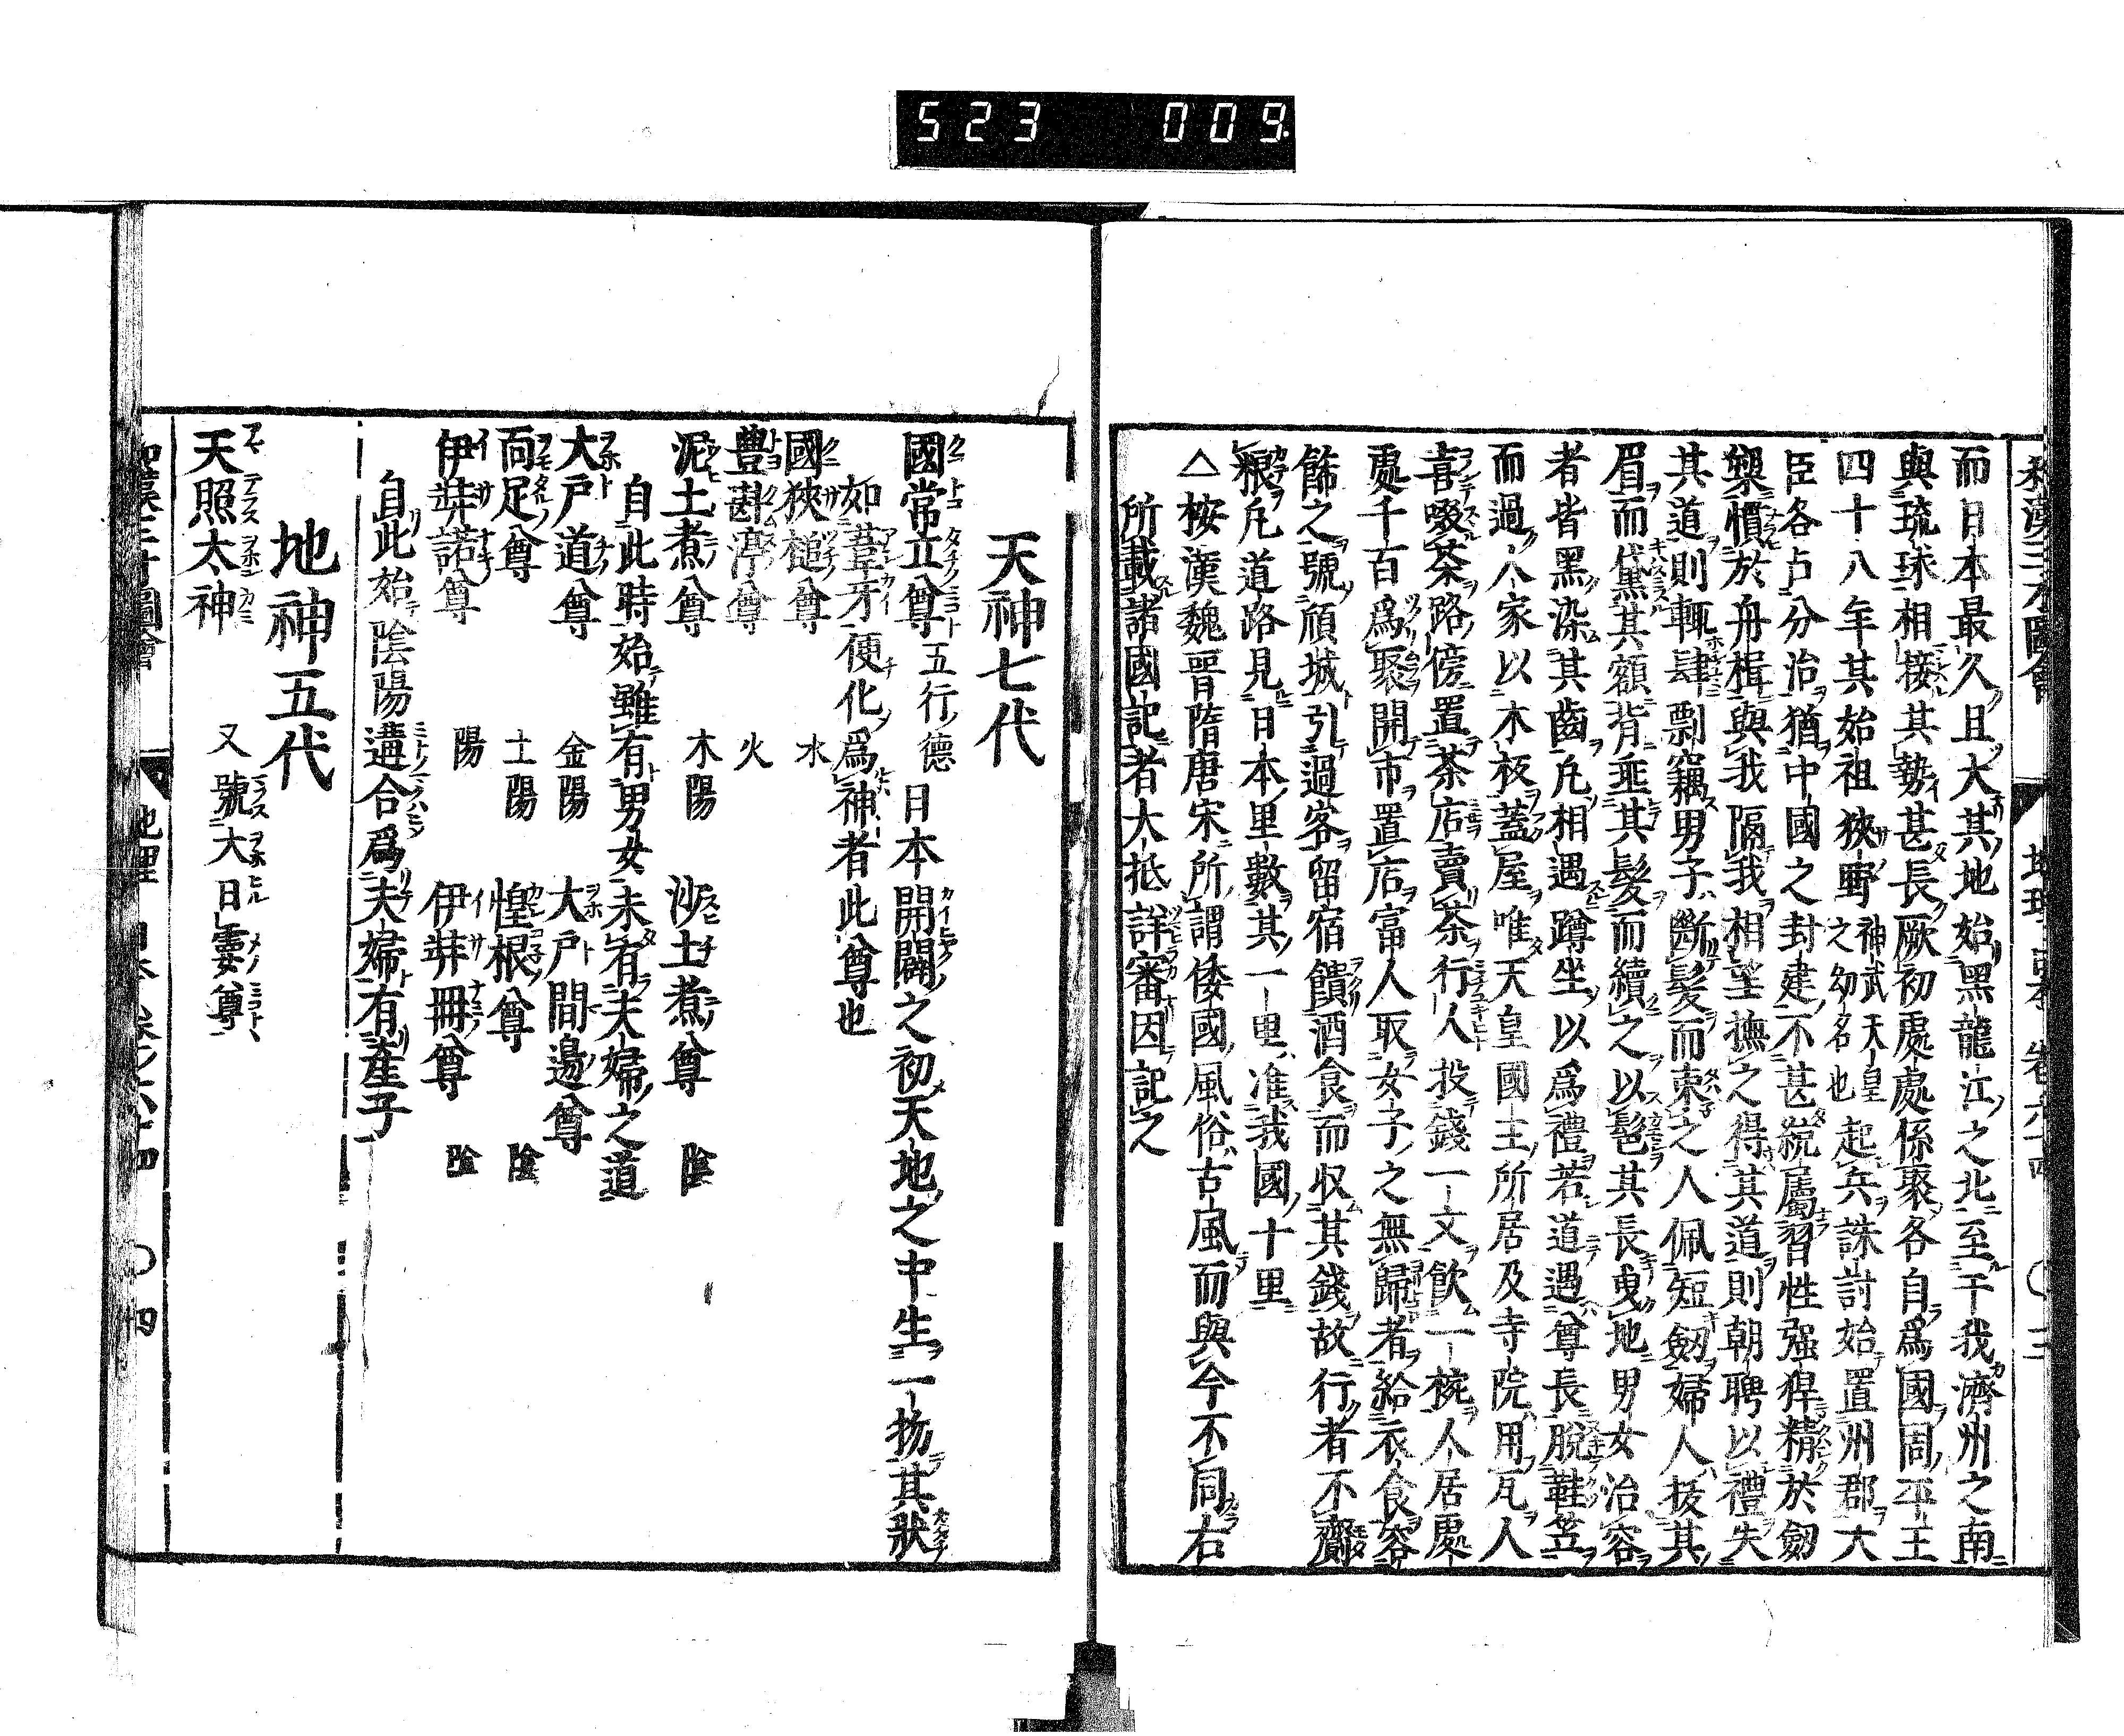 523 009
而日本最久且大其地始黑龍江之北至于我濟州之南
與琉球相接其勢甚長厥初處處係聚各自爲國周平王
四十八年其始祖狹野神武天皇之幼名也起兵誅討始置州郡大
臣各占分治猶中國之封建不甚統屬習性强猂精於劒
槊慣於舟楫與我隔我相望撫之得其道則朝聘以禮失
其道則輒肆剽竊男子斷髮而束之人佩短劒婦人拔其
眉而黛其額背垂其髮而續之以髢其長曳地男女治容
者皆黑染其齒凡相遇蹲坐以爲禮若道遇尊長脫鞋笠
而過人家以木板蓋屋唯天皇國主所居及寺院用瓦人
喜啜茶路傍置茶店賣茶行人投錢一文飲一椀人居處
處千百爲聚開市置店富人取女子之無歸者給衣食容
飾之號傾城引過客留宿饋酒食而収其錢故行者不齎
粮凡道路見日本里數其一里准我國十里
△桉漢魏晋隋唐宋所謂倭國風俗古風而與今不同右
所載諸國記者大抵詳審因記之
天神七代
國常立尊 五行德 日本開闢之初天地之中生一物其狀
如葦牙便化爲神者此尊也
國狹槌尊 水
豊斟渟尊 火
泥土煮尊 木陽 沙土煮尊 陰
自此時始雖有男女未有夫婦之道
大戸道尊 金陽 大戸間邊尊
面足尊 土陽 惶根尊 陰
伊弉諾尊 陽 伊弉冊尊 陰
自此始陰陽遘合爲夫婦有產子
地神五代
天照太神 又號大日孁尊
地理 日本 卷之六十四 〇四